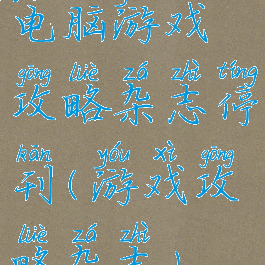 电脑游戏
gōng lüè zá zhì tíng
攻略杂志停
kān yóu xì gōng
刊(游戏攻
lüè zá zhì
略杂志)